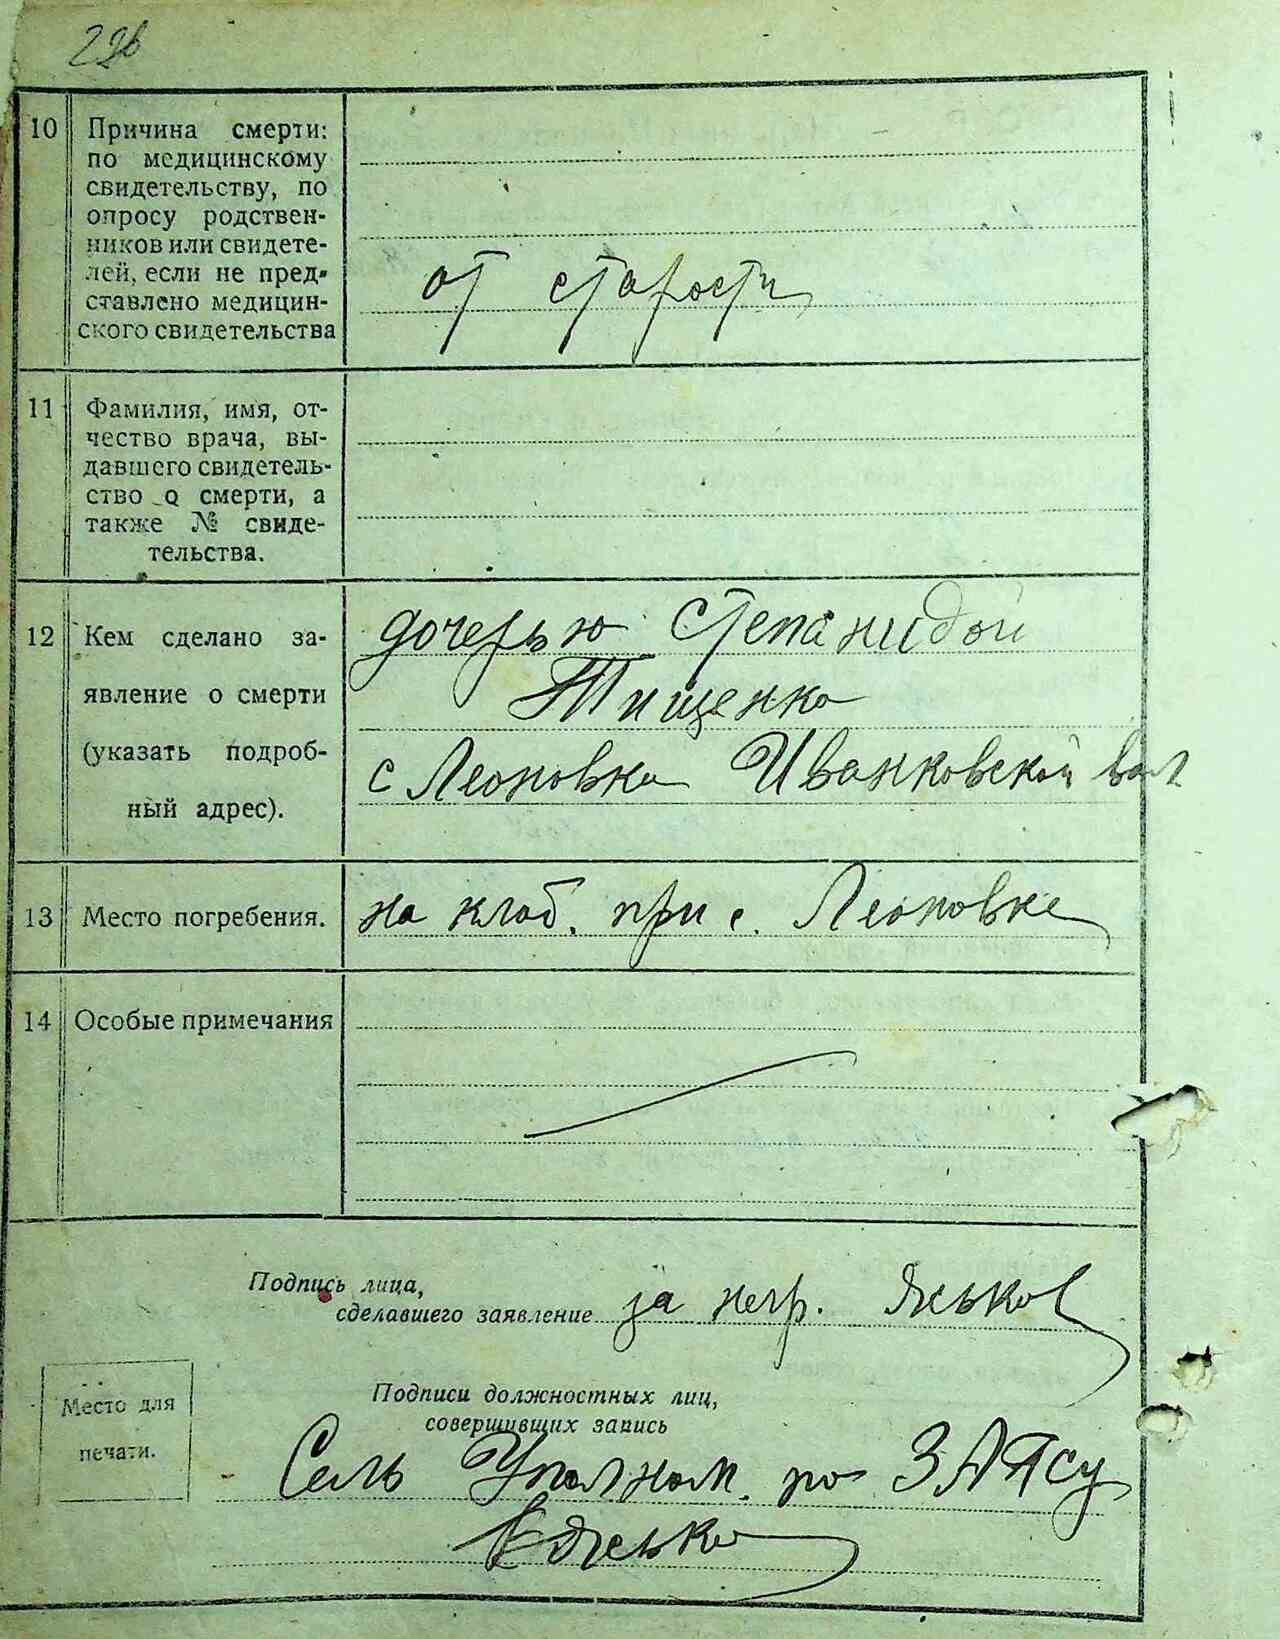 10
Причина смерти:
по медицинскому
свидетельству, по
опросу родствен-
ников или свидете-
лей, если не пред-
ставлено медицин-
ского свидетельства
от старости
11
Фамилия, имя, от-
чество врача, вы-
давшего свидетель-
ство о смерти, а
также № свиде-
тельства.
12
Кем сделано за-
явление о смерти
(указать подроб-
ный адрес).
дочерью Степанидой
Тищенко
с Леоновка Иванковской вол
13
Место погребения.
на клаб. при с. Леоновке
14
Особые примечания
Подпись лица,
сделавшего заявление за негр. Ясько
Место для
печати.
Подписи должностных лиц,
совершивших запись
Сель Уполном. по ЗАГСу
Ясько